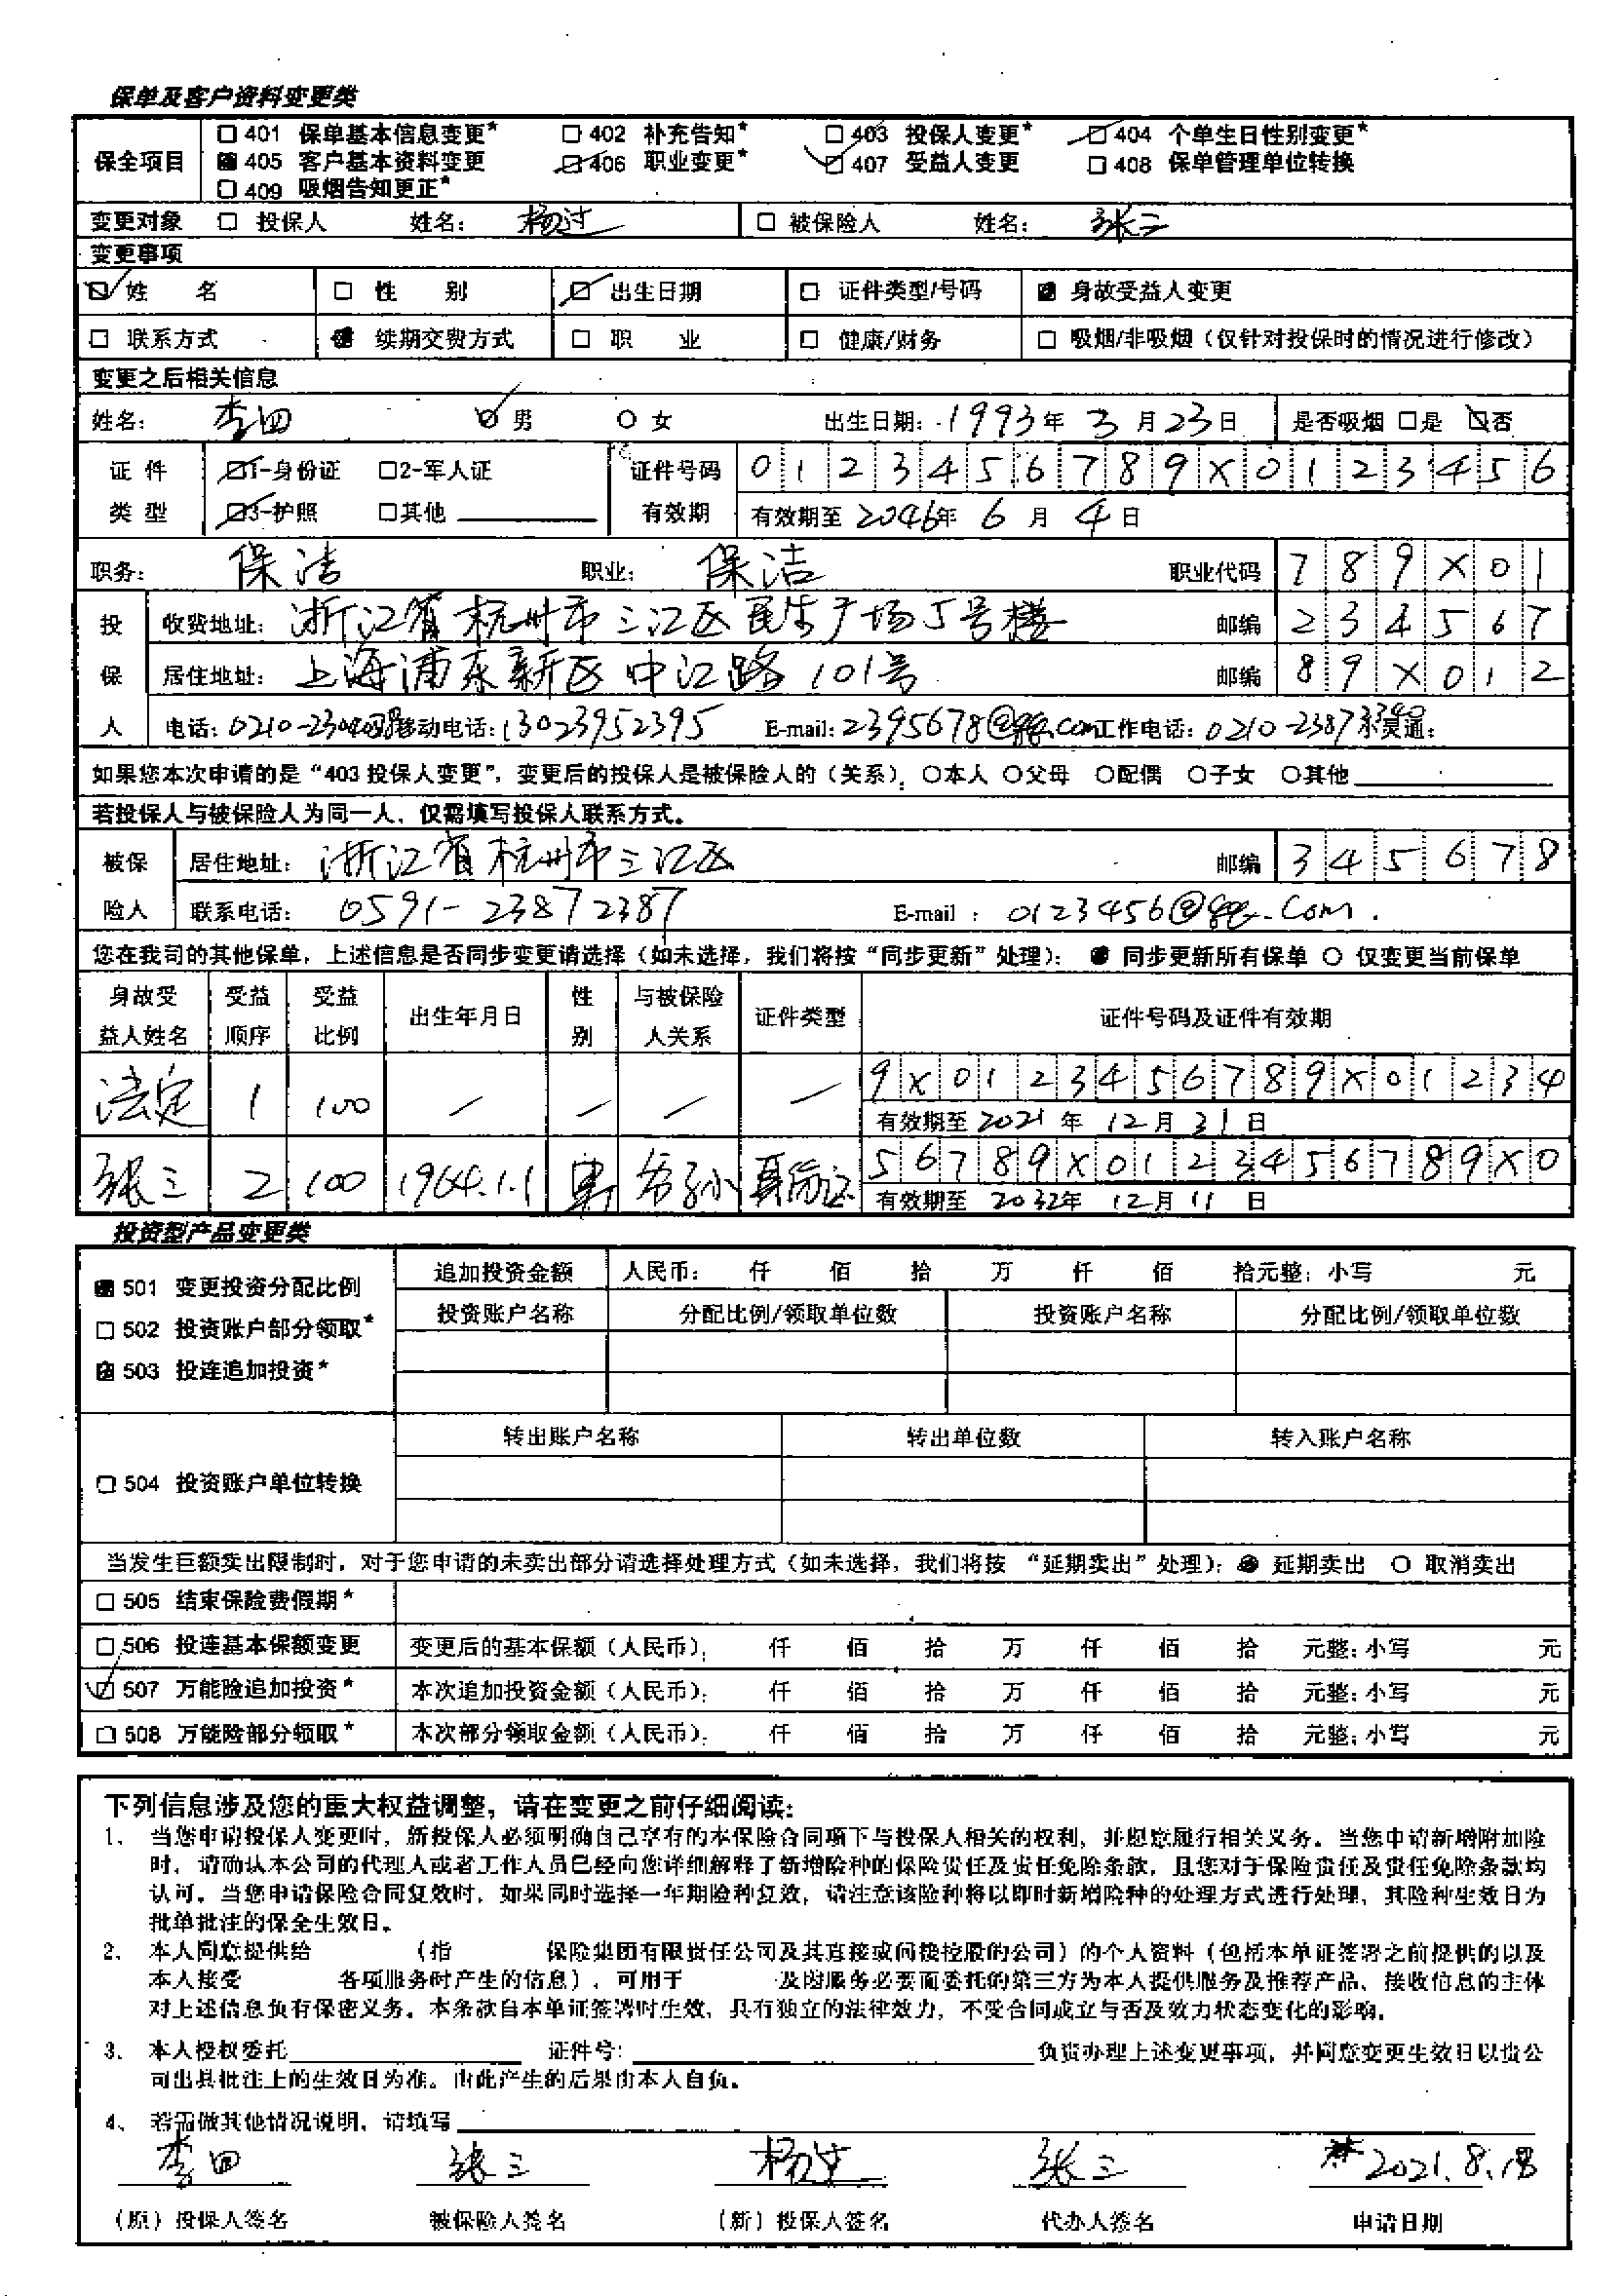 保单及客户资料变更类
保全项目 □ 401 保单基本信息变更* □ 402 补充告知* □ 403 投保人变更* ☑ 404 个单生日性别变更*
■ 405 客户基本资料变更 ☑ 406 职业变更* ☑ 407 受益人变更 □ 408 保单管理单位转换
□ 409 吸烟告知更正*
变更对象 □ 投保人 姓名: 杨过 □ 被保险人 姓名: 张三
变更事项
☑ 姓 名 □ 性 别 ☑ 出生日期 □ 证件类型/号码 ■ 身故受益人变更
□ 联系方式 ■ 续期交费方式 □ 职 业 □ 健康/财务 □ 吸烟/非吸烟（仅针对投保时的情况进行修改）
变更之后相关信息
姓名: 李四 ☑ 男 ○ 女 出生日期: 1993 年 3 月 23 日 是否吸烟 □是 ☑否
证件类型 ☑1-身份证 □2-军人证 证件号码 0123456789X0123456
☑3-护照 □其他 有效期 有效期至 2046 年 6 月 4 日
职务: 保洁 职业: 保洁 职业代码 789X01
投保人 收费地址: 浙江省杭州市三江区民生广场5号楼 邮编 234567
居住地址: 上海浦东新区中江路101号 邮编 89X012
电话: 0210- 移动电话: 13023952395 E-mail: 2395678@qq.com 工作电话: 0210-23873390 小灵通:
如果您本次申请的是“403 投保人变更”，变更后的投保人是被保险人的（关系）: ○本人 ○父母 ○配偶 ○子女 ○其他
若投保人与被保险人为同一人，仅需填写投保人联系方式。
被保险人 居住地址: 浙江省杭州市三江区 邮编 345678
联系电话: 0591-23872387 E-mail : 0123456@qq.com.
您在我司的其他保单，上述信息是否同步变更请选择（如未选择，我们将按“同步更新”处理）: ● 同步更新所有保单 ○ 仅变更当前保单
身故受益人姓名 受益顺序 受益比例 出生年月日 性别 与被保险人关系 证件类型 证件号码及证件有效期
法定 1 100 / / / / 9X0123456789X01234
有效期至 2021 年 12 月 31 日
张三 2 100 1964.1.1 男 身份证 56789X0123456789X0
有效期至 2032 年 12 月 11 日
投资型产品变更类
■ 501 变更投资分配比例 追加投资金额 人民币: 仟 佰 拾 万 仟 佰 拾元整; 小写 元
□ 502 投资账户部分领取* 投资账户名称 分配比例/领取单位数 投资账户名称 分配比例/领取单位数
☑ 503 投连追加投资*
□ 504 投资账户单位转换 转出账户名称 转出单位数 转入账户名称
当发生巨额卖出限制时，对于您申请的未卖出部分请选择处理方式（如未选择，我们将按 “延期卖出”处理）: ● 延期卖出 ○ 取消卖出
□ 505 结束保险费假期*
□ 506 投连基本保额变更 变更后的基本保额（人民币）: 仟 佰 拾 万 仟 佰 拾 元整; 小写 元
☑ 507 万能险追加投资* 本次追加投资金额（人民币）: 仟 佰 拾 万 仟 佰 拾 元整; 小写 元
□ 508 万能险部分领取* 本次部分领取金额（人民币）: 仟 佰 拾 万 仟 佰 拾 元整; 小写 元
下列信息涉及您的重大权益调整，请在变更之前仔细阅读:
1、 当您申请投保人变更时，新投保人必须明确自己享有的本保险合同项下与投保人相关的权利，并愿意履行相关义务。当您申请新增附加险
时，请确认本公司的代理人或者工作人员已经向您详细解释了新增险种的保险责任及责任免除条款，且您对于保险责任及责任免除条款均
认可。当您申请保险合同复效时，如果同时选择一年期险种复效，请注意该险种将以即时新增险种的处理方式进行处理，其险种生效日为
批单批注的保全生效日。
2、 本人同意提供给 （指 保险集团有限责任公司及其直接或间接控股的公司）的个人资料（包括本单证签署之前提供的以及
本人接受 各项服务时产生的信息），可用于 及因服务必要而委托的第三方为本人提供服务及推荐产品，接收信息的主体
对上述信息负有保密义务。本条款自本单证签署时生效，具有独立的法律效力，不受合同成立与否及效力状态变化的影响。
3、 本人授权委托 证件号: 负责办理上述变更事项，并同意变更生效日以贵公
司出具批注上的生效日为准。由此产生的后果由本人自负。
4、 若需做其他情况说明，请填写
李四 张三 杨过 张三 2021.8.18
（原）投保人签名 被保险人签名 （新）投保人签名 代办人签名 申请日期